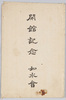 開館記念
和水會